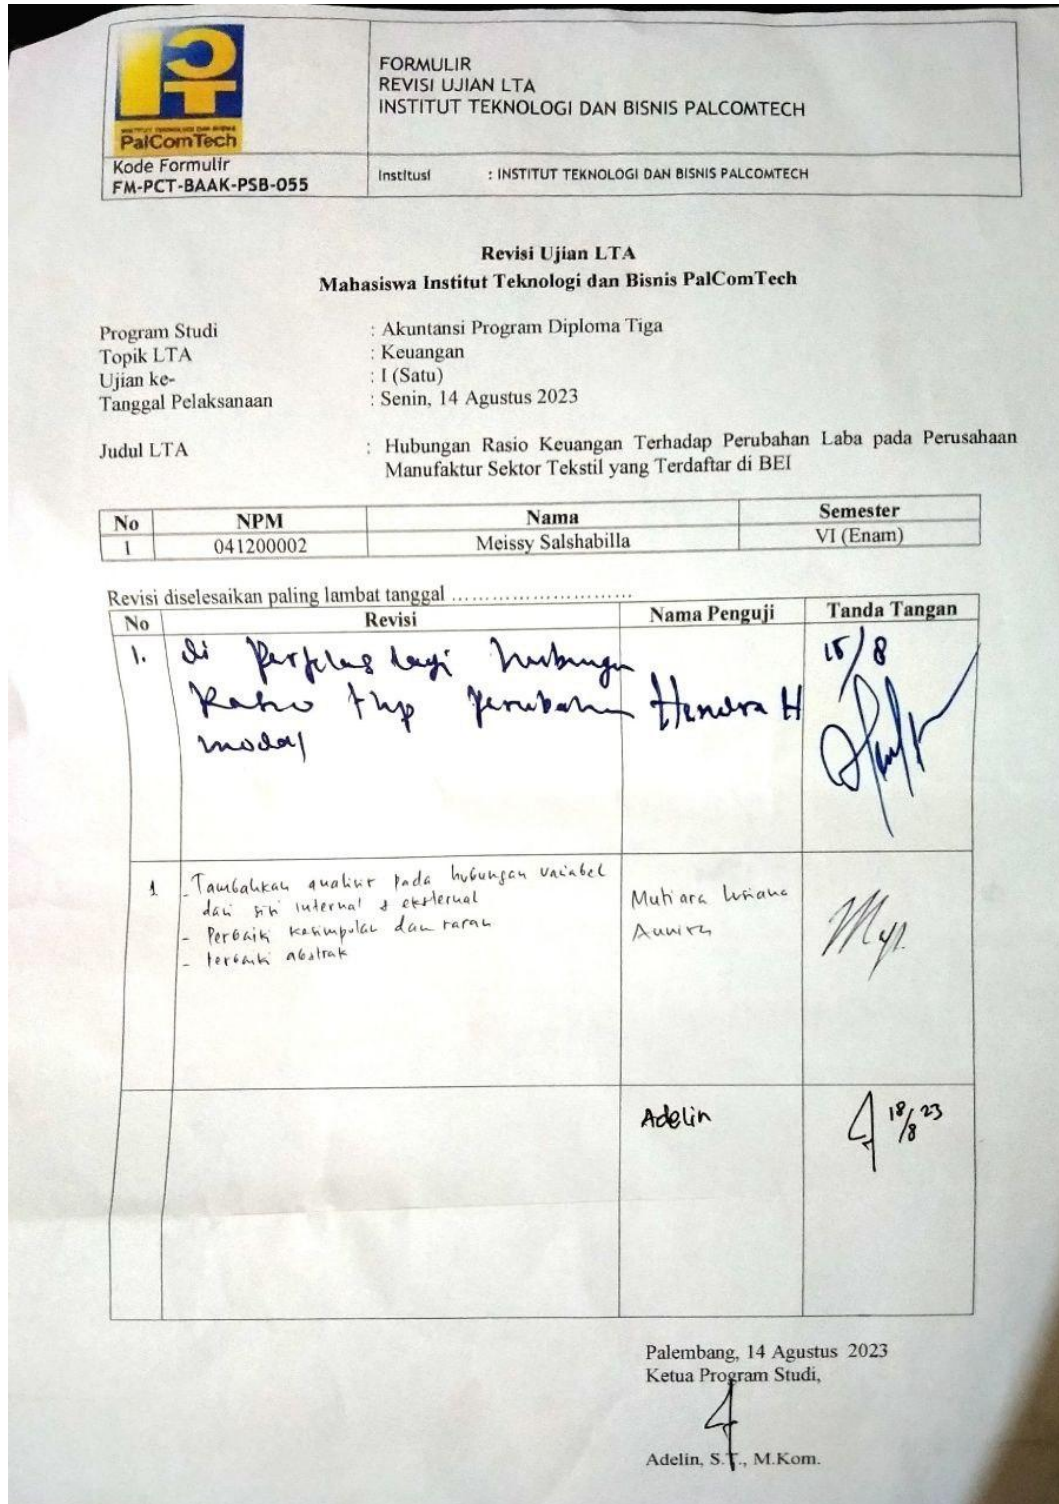 INSTITUT TEKNOLOGI DAN BISNIS
PalComTech
Kode Formulir
FM-PCT-BAAK-PSB-055
FORMULIR
REVISI UJIAN LTA
INSTITUT TEKNOLOGI DAN BISNIS PALCOMTECH
Institusi : INSTITUT TEKNOLOGI DAN BISNIS PALCOMTECH
Revisi Ujian LTA
Mahasiswa Institut Teknologi dan Bisnis PalComTech
Program Studi : Akuntansi Program Diploma Tiga
Topik LTA : Keuangan
Ujian ke- : I (Satu)
Tanggal Pelaksanaan : Senin, 14 Agustus 2023
Judul LTA : Hubungan Rasio Keuangan Terhadap Perubahan Laba pada Perusahaan
Manufaktur Sektor Tekstil yang Terdaftar di BEI
No NPM Nama Semester
1 041200002 Meissy Salshabilla VI (Enam)
Revisi diselesaikan paling lambat tanggal ..............................
No Revisi Nama Penguji Tanda Tangan
1. di perjelas lagi hubungan 15/8
Rasio thp perubahan Hendra H
modal
1 - Tambahkan analisis pada hubungan variabel
dari sisi internal & eksternal
- Perbaiki kesimpulan dan saran
- Perbaiki abstrak
Mutiara Lusiana
Annisa
Adelin 18/8 23
Palembang, 14 Agustus 2023
Ketua Program Studi,
Adelin, S.T., M.Kom.